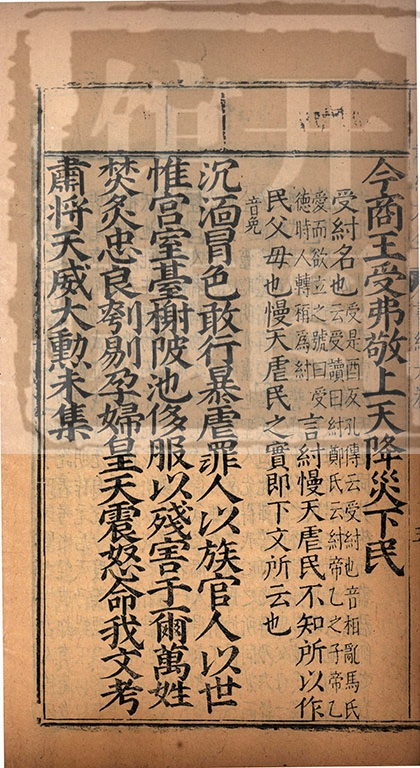 今商王受弗敬上天降災下民
受紂名也云受讀曰紂鄭氏云紂帝乙之子帝乙
受是酉友孔傳云受紂也音相亂馬氏
愛而欲立之號曰受
德時人轉稱爲紂
言紂慢天虐民不知所以作
民父母也慢天虐民之實即下文所云也
音免
沉湎冒色敢行暴虐罪人以族官人以世
惟宫室臺榭陂池侈服以殘害于爾萬姓
焚炙忠良刳剔孕婦皇天震怒命我文考
肅將天威大勲未集